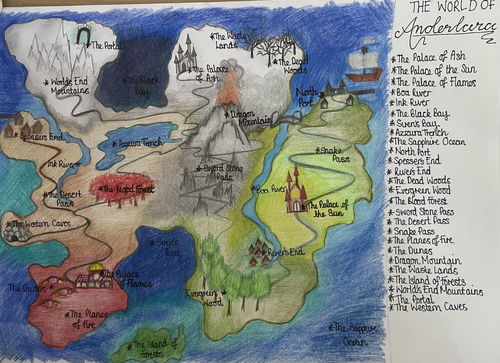 THE WORLD OF
* The Portal
* The Waste
Lands
* The Dead
Woods
* World's End
Mountains
* The Black
Bay
* The Palace
of Ash
North
Port
* Dragon
Mountain
* Spesser's End
* Azsura Trench
* Snake
Pass
Ink River
* Sword Stone
Pass
* The Desert
Pass
* The Blood Forest
Boa River
* The Palace of
the Sun
* The Western Caves
* Siren's
Bay
* River's End
* The Palace
of Flames
* The Dunes
Evergreen *
Wood
* The Planes
of Fire
* The Island of
Forests
* The Sapphire
Ocean
* The Palace of Ash
* The Palace of the Sun
* The Palace of Flames
* Boa River
* Ink River
* The Black Bay
* Siren's Bay
* Azsura Trench
* The Sapphire Ocean
* North Port
* Spesser's End
* River's End
* The Dead Woods
* Evergreen Wood
* The Blood Forest
* Sword Stone Pass
* The Desert Pass
* Snake Pass
* The Planes of Fire
* The Dunes
* Dragon Mountain
* The Waste Lands
* The Island of Forests
* World's End Mountains
* The Portal
* The Western Caves